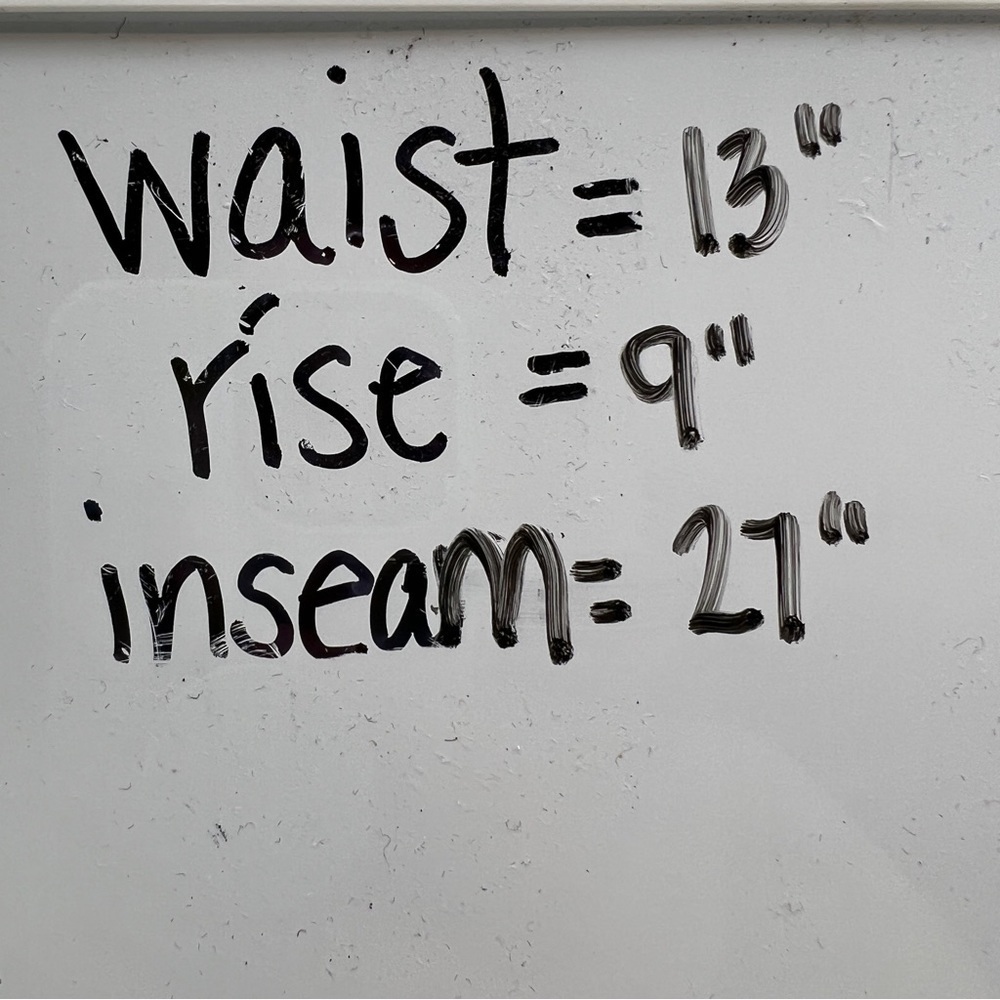 waist = 13"
rise = 9"
inseam = 27"